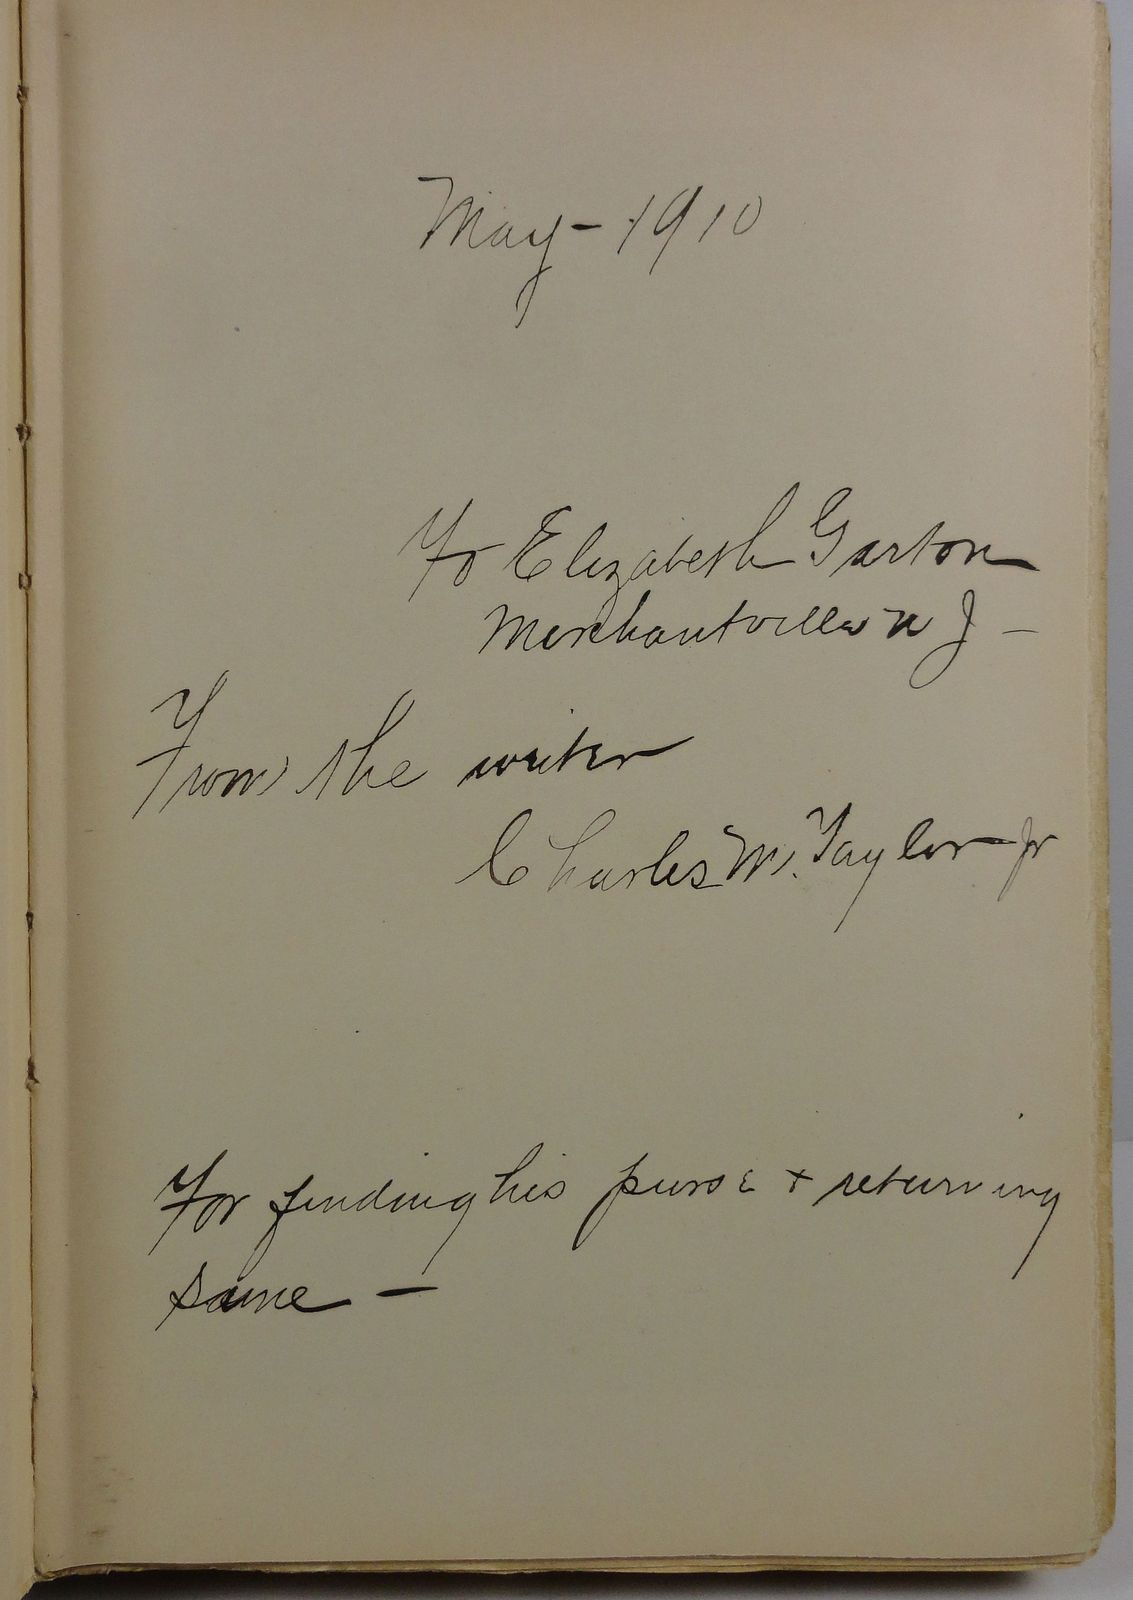 May - 1910
To Elizabeth Garton
Merchantville N J -
From the writer
Charles W. Taylor Jr
For finding his purse + returning
same -